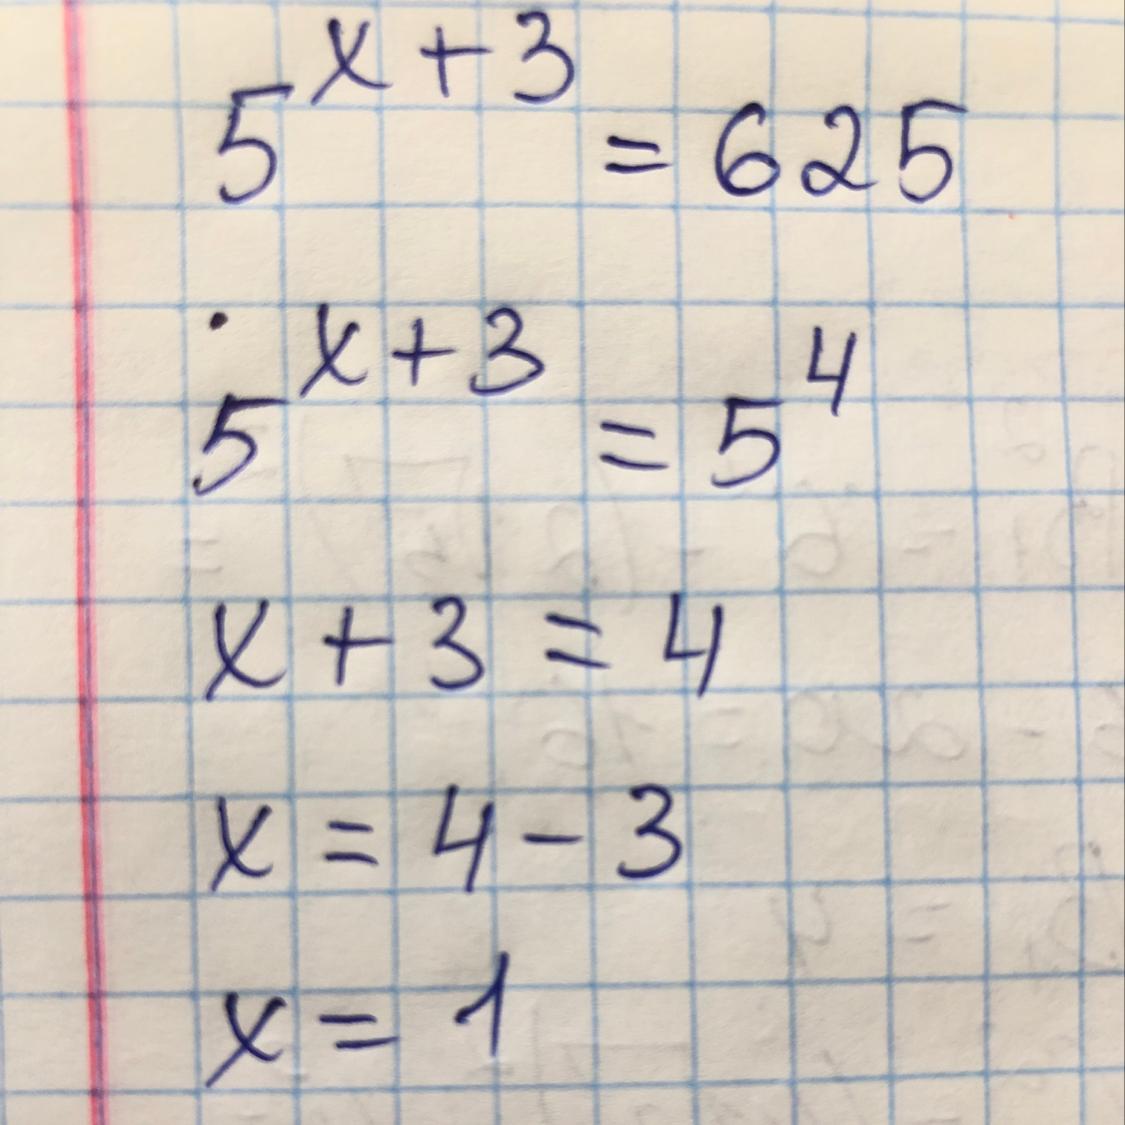 5^{x+3} = 625
5^{x+3} = 5^4
x + 3 = 4
x = 4 - 3
x = 1